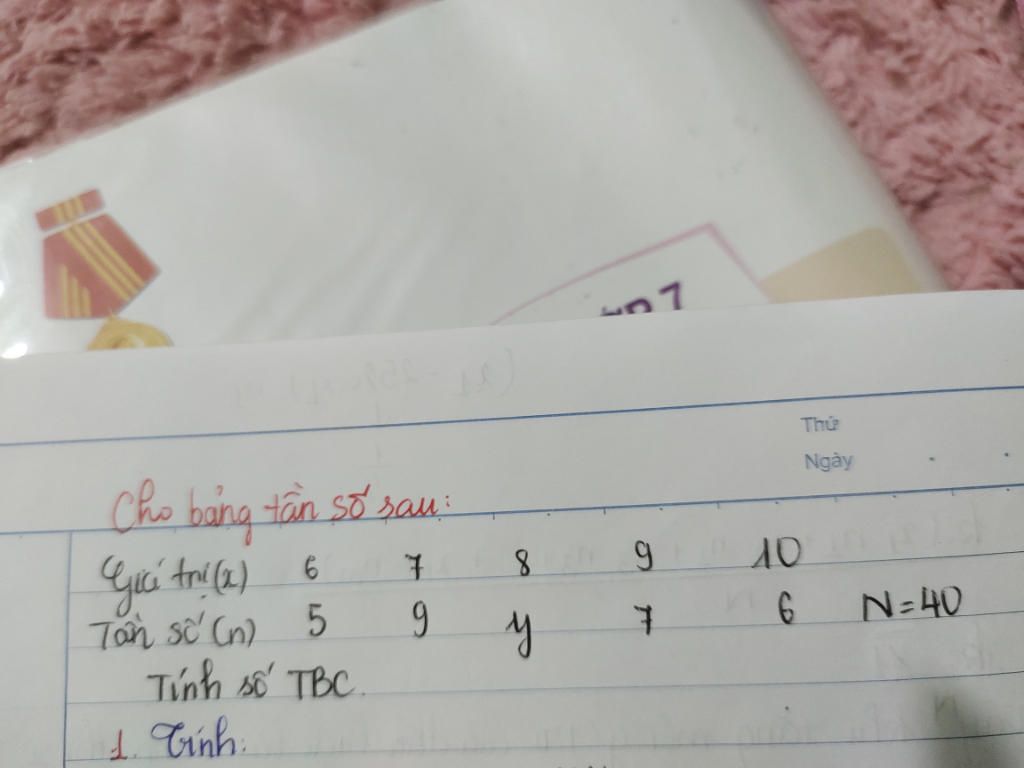 7
Thứ
Ngày
Cho bảng tần số sau:
Giá trị (x) 6 7 8 9 10
Tần số (n) 5 9 y 7 6 N=40
Tính số TBC.
1. Tính: